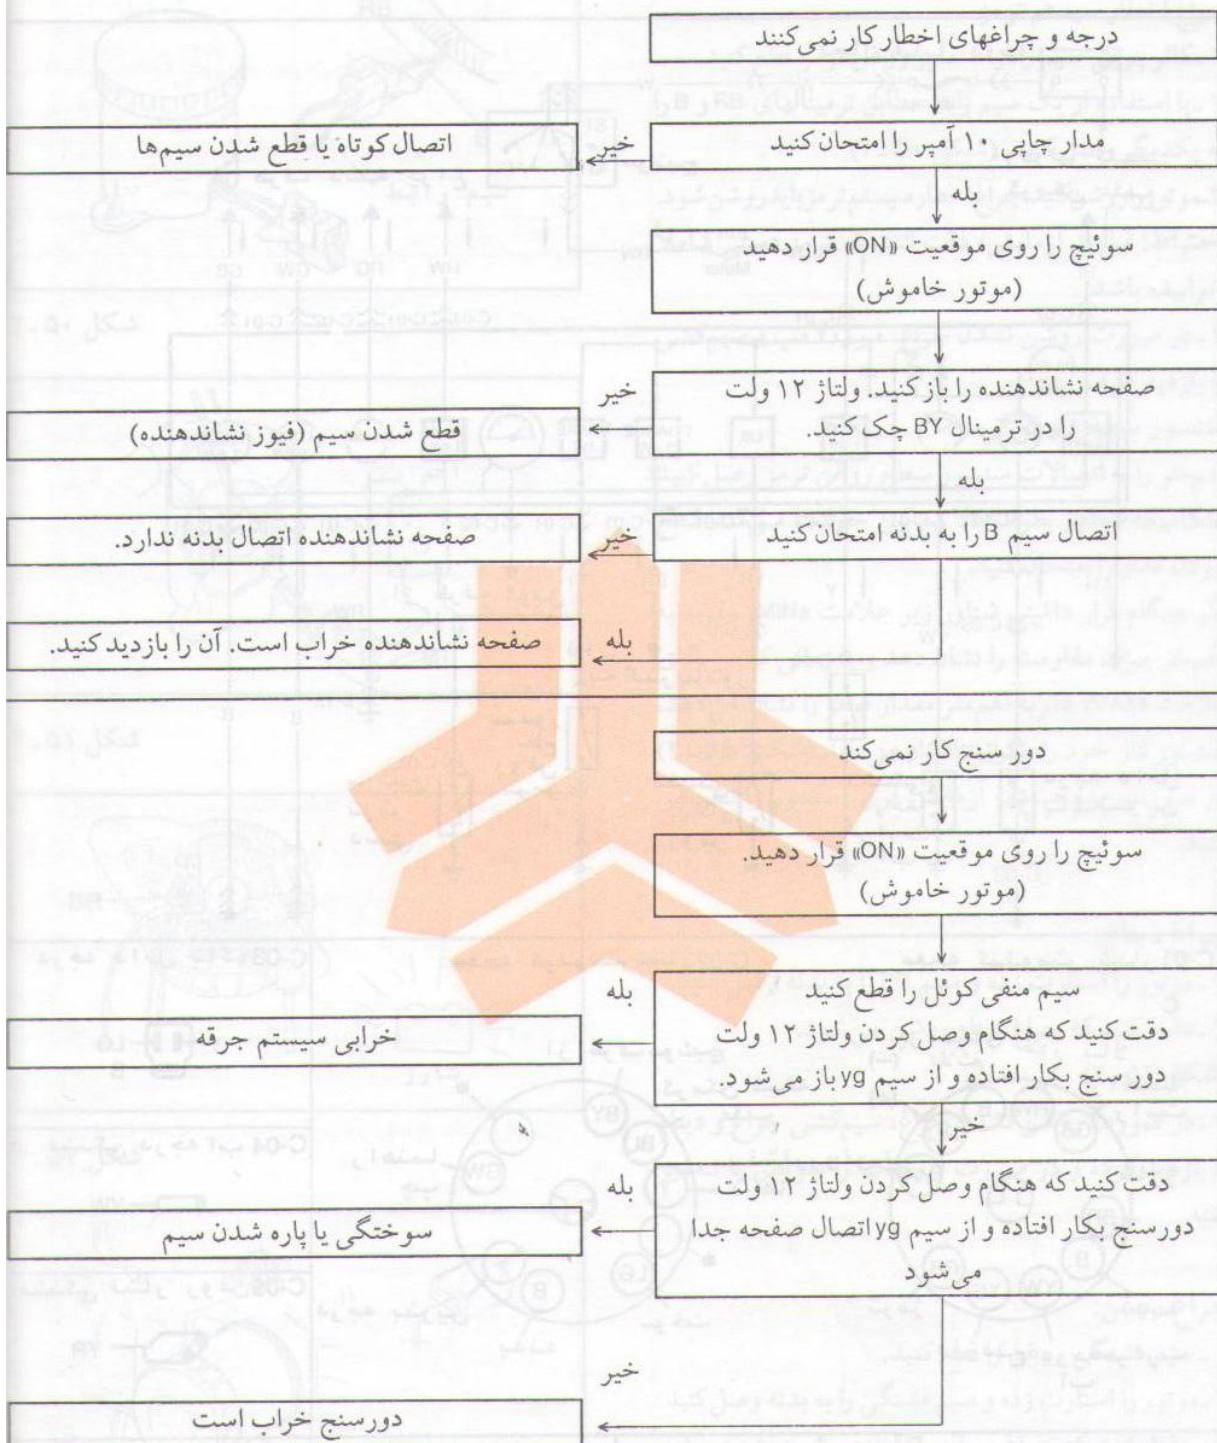 درجه و چراغهای اخطار کار نمی‌کنند
مدار چاپی ۱۰ آمپر را امتحان کنید
خیر
اتصال کوتاه یا قطع شدن سیم‌ها
بله
سوئیچ را روی موقعیت «ON» قرار دهید
(موتور خاموش)
صفحه نشاندهنده را باز کنید. ولتاژ ۱۲ ولت
را در ترمینال BY چک کنید.
خیر
قطع شدن سیم (فیوز نشاندهنده)
بله
اتصال سیم B را به بدنه امتحان کنید
خیر
صفحه نشاندهنده اتصال بدنه ندارد.
بله
صفحه نشاندهنده خراب است. آن را بازدید کنید.
دور سنج کار نمی‌کند
سوئیچ را روی موقعیت «ON» قرار دهید.
(موتور خاموش)
سیم منفی کوئل را قطع کنید
دقت کنید که هنگام وصل کردن ولتاژ ۱۲ ولت
دور سنج بکار افتاده و از سیم yg باز می‌شود.
بله
خرابی سیستم جرقه
خیر
دقت کنید که هنگام وصل کردن ولتاژ ۱۲ ولت
دورسنج بکار افتاده و از سیم yg اتصال صفحه جدا
می‌شود
بله
سوختگی یا پاره شدن سیم
خیر
دورسنج خراب است